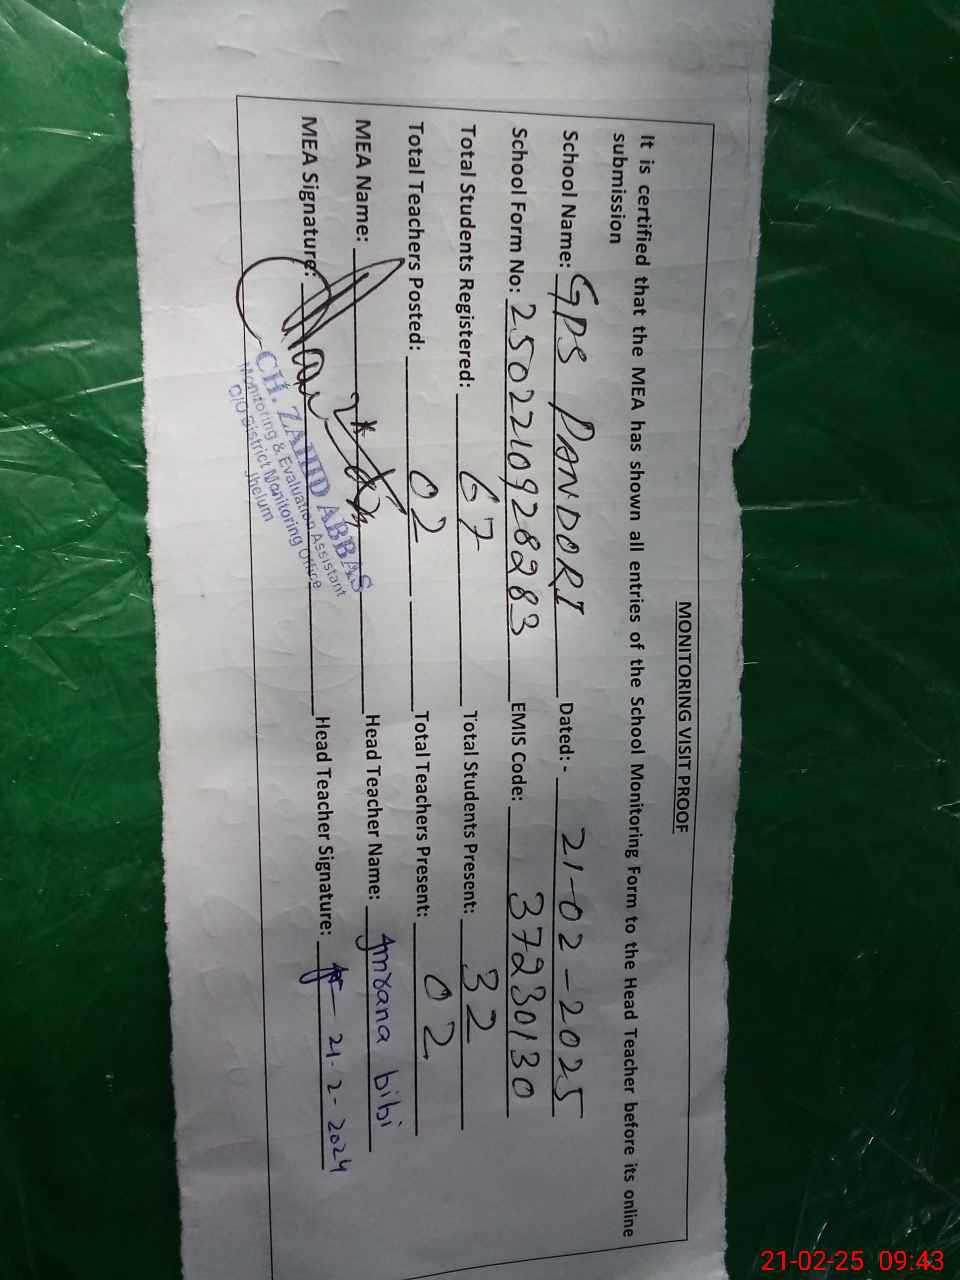 MONITORING VISIT PROOF
It is certified that the MEA has shown all entries of the School Monitoring Form to the Head Teacher before its online
submission
School Name: GPS PANDORI Dated:- 21-02-2025
School Form No: 2502210928283 EMIS Code: 37230130
Total Students Registered: 67 Total Students Present: 32
Total Teachers Posted: 02 Total Teachers Present: 02
MEA Name: Head Teacher Name: Amrana bibi
MEA Signature: Head Teacher Signature: 21-2-2024
CH. ZAHID ABBAS
Monitoring & Evaluation Assistant
O/O District Monitoring Office
Jhelum
21-02-25 09:43